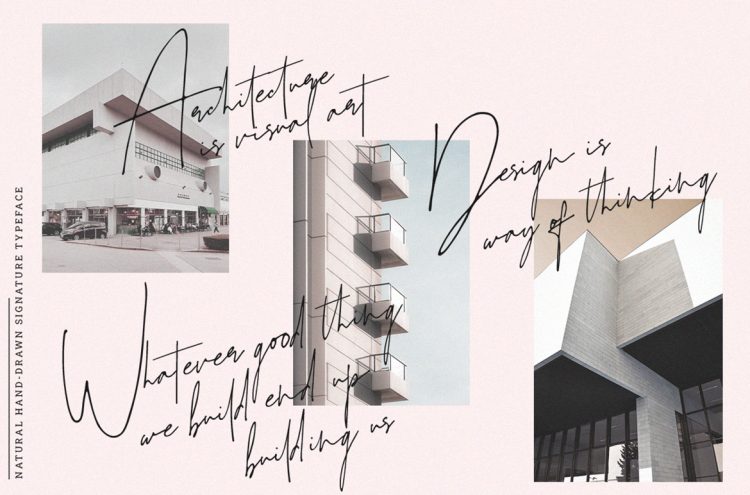 Architecture
is visual art
Design is
way of thinking
Whatever good thing
we build end up
building us
NATURAL HAND-DRAWN SIGNATURE TYPEFACE